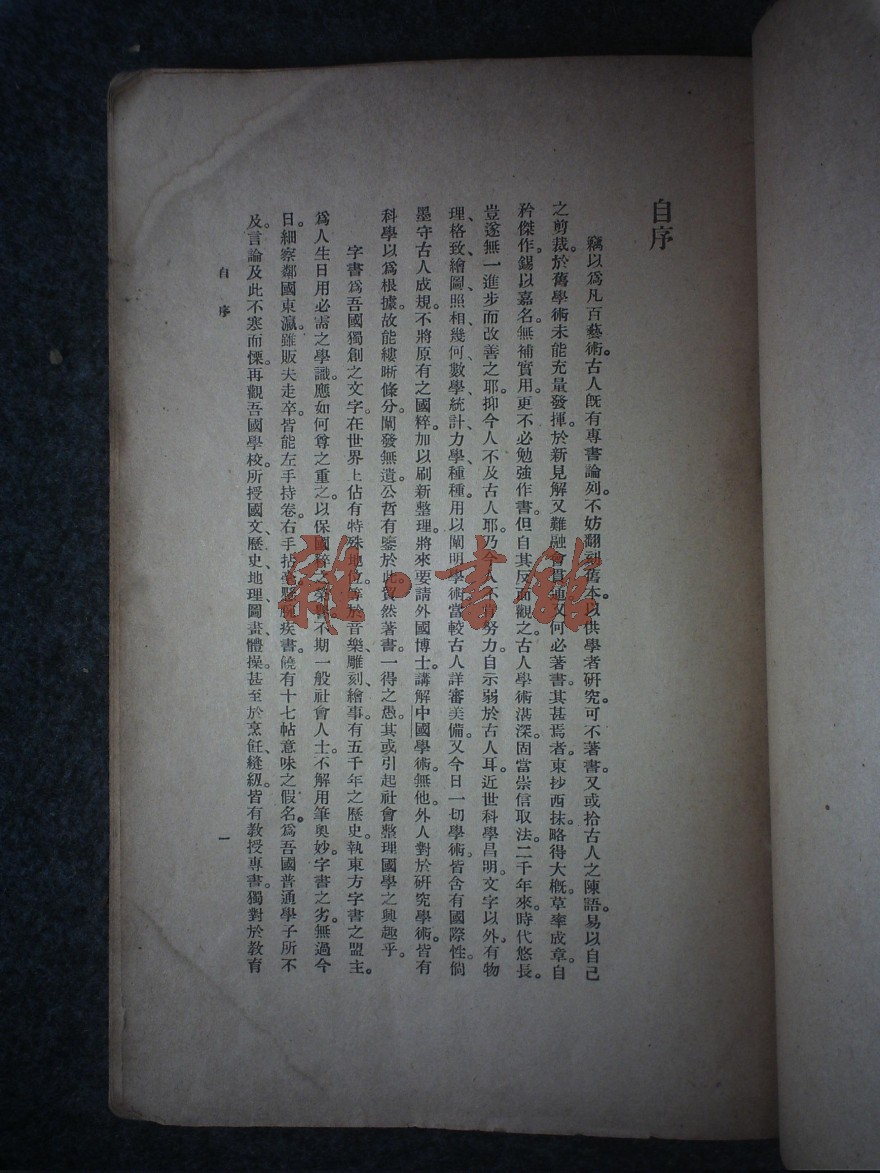 自序
竊以爲凡百藝術。古人旣有專書論列。不妨翻刻舊本。以供學者研究。可不著書。又或拾古人之陳語。易以自己
之剪裁。於舊學術未能充量發揮。於新見解又難融會貫通。又何必著書。其甚焉者。東抄西抹。略得大槪。草率成章。自
矜傑作。錫以嘉名。無補實用。更不必勉強作書。但自其反面觀之。古人學術湛深。固當崇信取法。二千年來。時代悠長。
豈遂無一進步而改善之耶。抑今人不及古人耶。乃今人不努力。自示弱於古人耳。近世科學昌明。文字以外。有物
理、格致、繪圖、照相、幾何、數學、統計、力學、種種。用以闡明學術。當較古人詳審美備。又今日一切學術。皆含有國際性。倘
墨守古人成規。不將原有之國粹。加以刷新整理。將來要請外國博士。講解中國學術。無他。外人對於研究學術。皆有
科學以爲根據。故能縷晰條分。闡發無遺。公哲有鑒於此。貿然著書。一得之愚。其或引起社會整理國學之興趣乎。
字書爲吾國獨創之文字。在世界上佔有特殊地位。等於音樂、雕刻、繪事。有五千年之歷史。執東方字書之盟主。
爲人生日用必需之學識。應如何尊之重之。以保國粹之榮譽。不期一般社會人士。不解用筆奧妙。字書之劣。無過今
日。細察鄰國東瀛。雖販夫走卒。皆能左手持卷。右手拈毫。懸腕疾書。饒有十七帖意味之假名。爲吾國普通學子所不
及。言論及此。不寒而慄。再觀吾國學校。所授國文、歷史、地理、圖畫、體操。甚至於烹飪、縫級。皆有教授專書。獨對於教育
自序
一
雜·書館